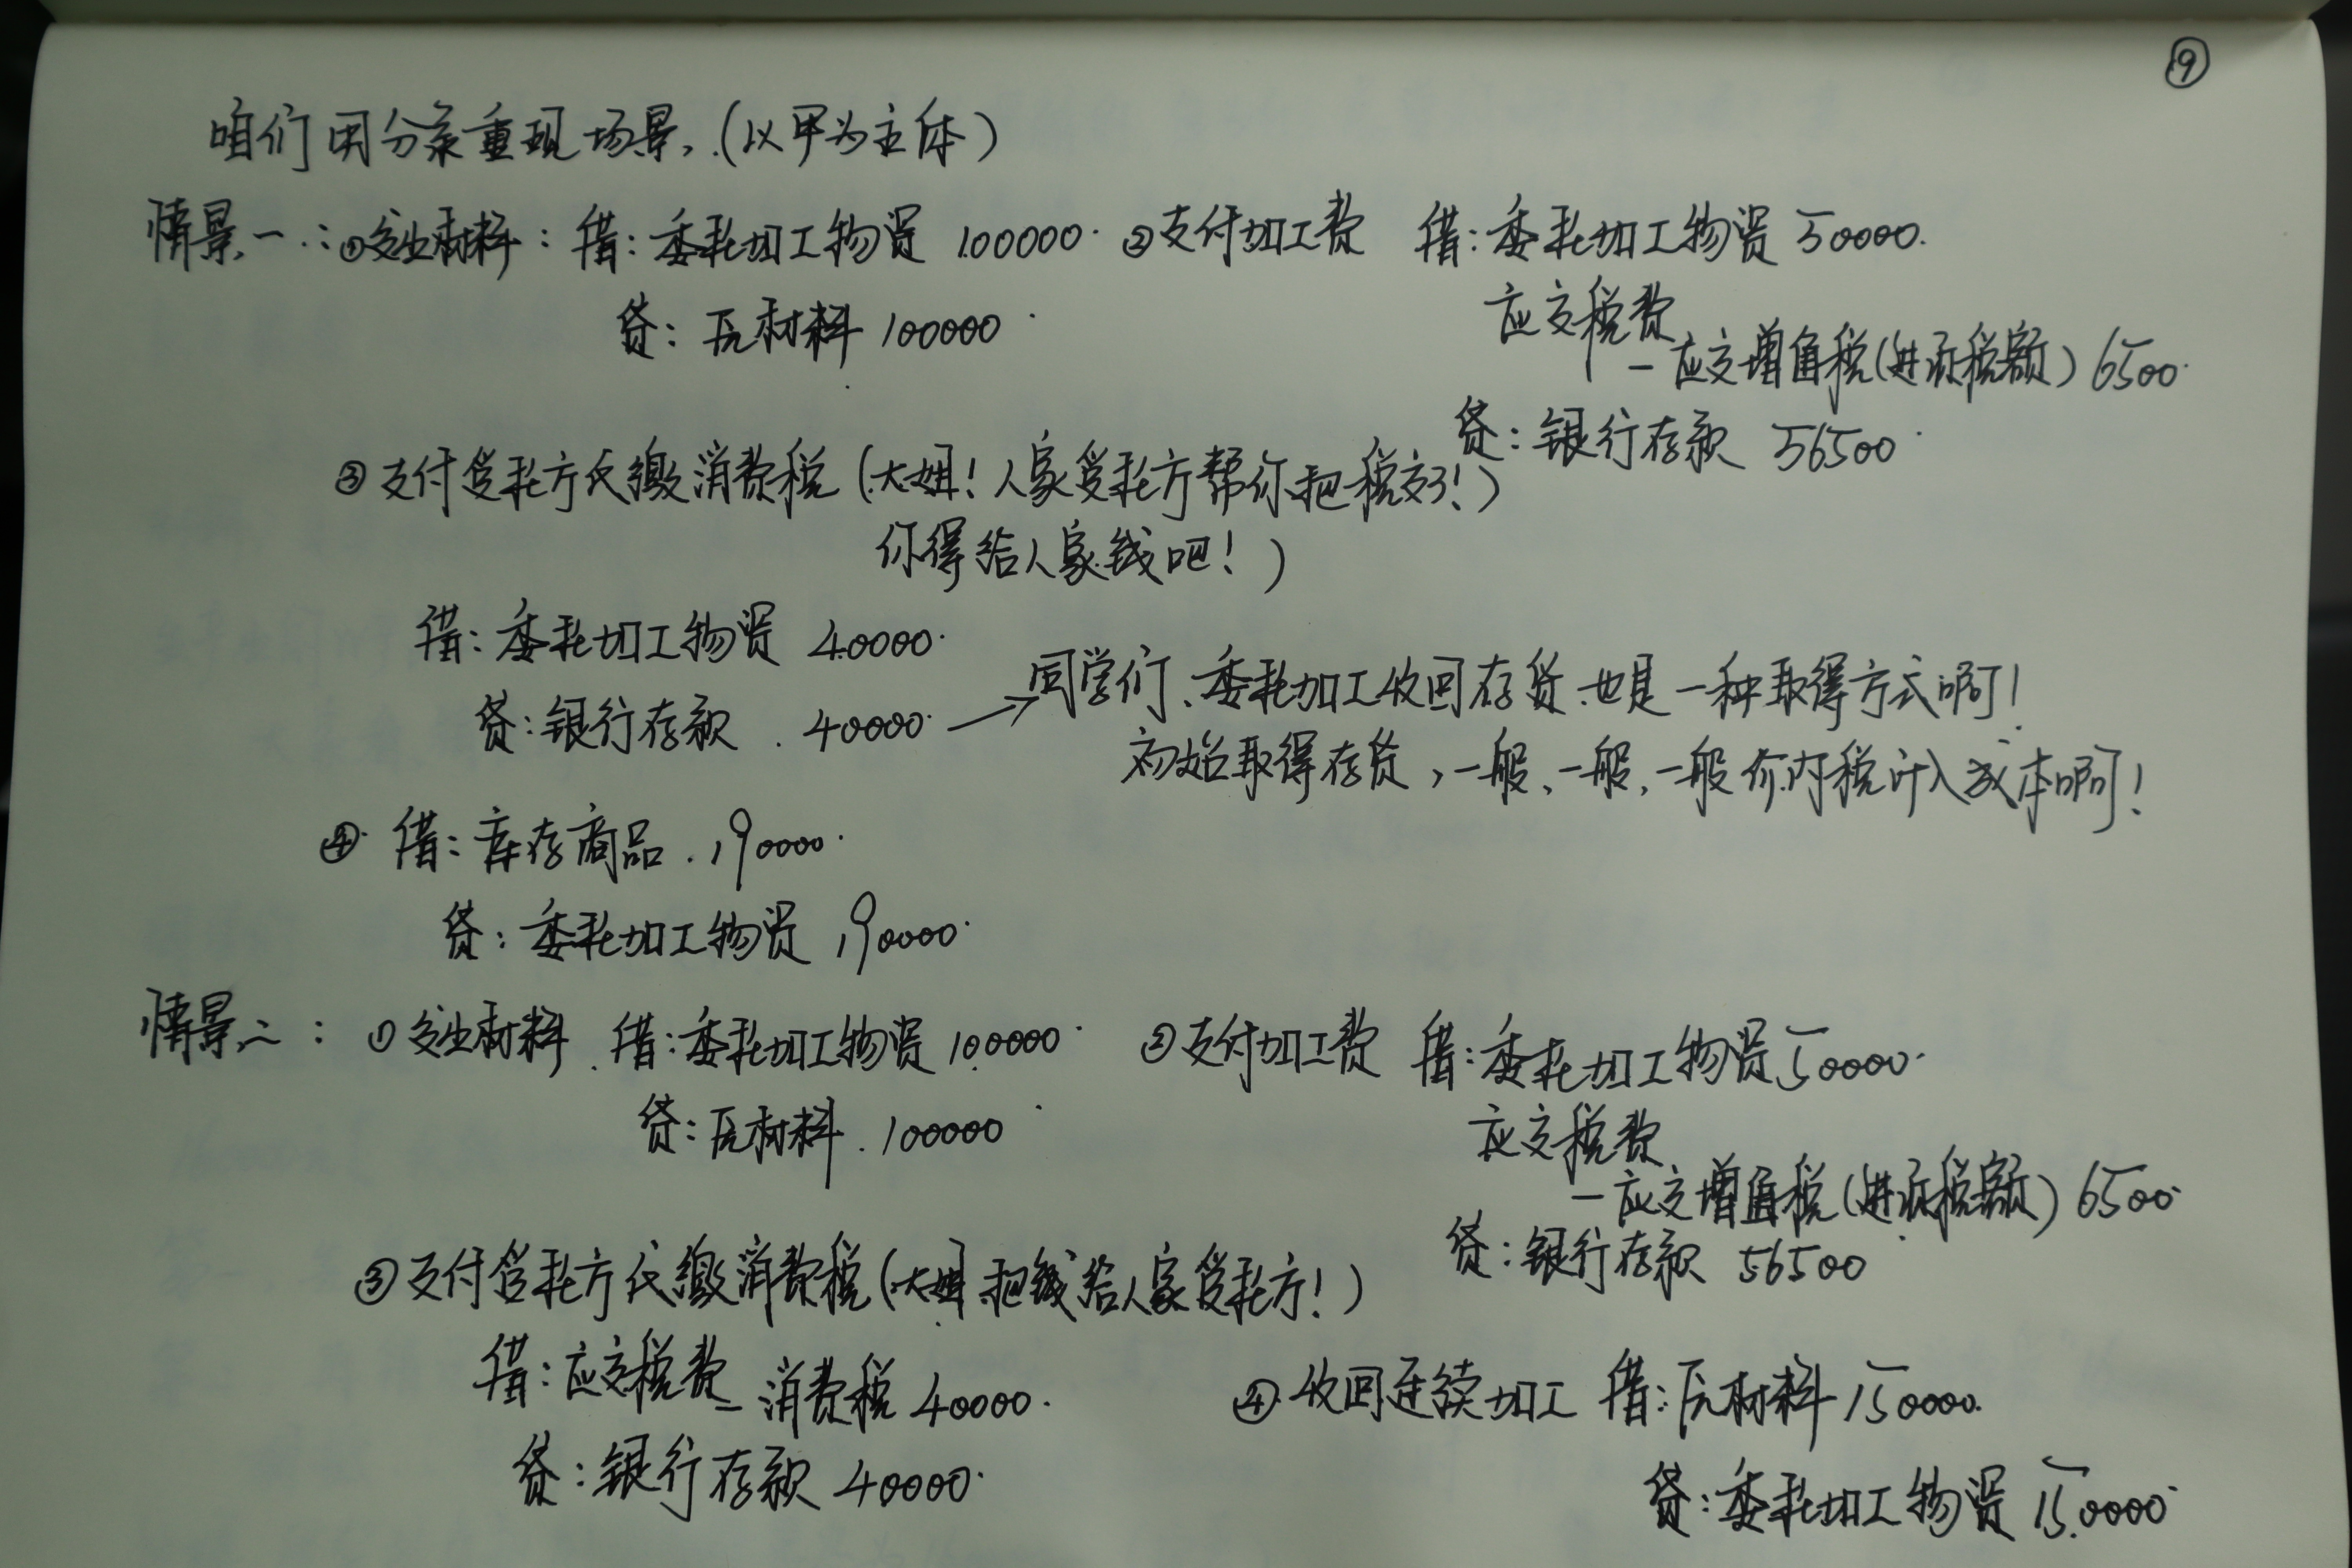 ⑨
咱们用分录重现场景,(以甲为主体)
情景一:①发出材料:借:委托加工物资 100000
贷:原材料 100000
②支付加工费 借:委托加工物资 50000
应交税费
—应交增值税(进项税额) 6500
贷:银行存款 56500
③支付受托方代缴消费税(大姐!人家受托方帮你把税交了!)
你得给人家钱吧!)
借:委托加工物资 40000
贷:银行存款 40000
→同学们、委托加工收回存货也是一种取得方式啊!
初始取得存货,一般、一般,一般价内税计入成本啊!
④借:库存商品 190000
贷:委托加工物资 190000
情景二:①发出材料 借:委托加工物资 100000
贷:原材料 100000
②支付加工费 借:委托加工物资 50000
应交税费
—应交增值税(进项税额) 6500
贷:银行存款 56500
③支付受托方代缴消费税(大姐 把钱给人家受托方!)
借:应交税费—消费税 40000
贷:银行存款 40000
④收回连续加工 借:原材料 150000
贷:委托加工物资 150000